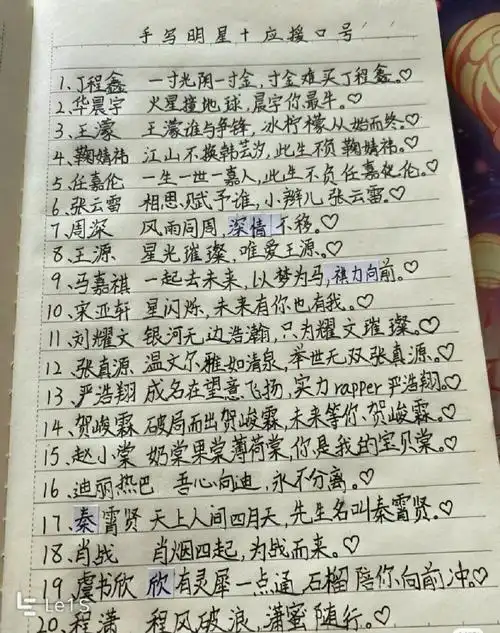 手写明星+应援口号
1、丁程鑫 一寸光阴一寸金,寸金难买丁程鑫。♡
2、华晨宇 火星撞地球,晨宇你最牛。♡
3、王濛 王濛谁与争锋,冰柠檬从始而终。♡
4、鞠婧祎 江山不换韩芸汐,此生不负鞠婧祎。♡
5、任嘉伦 一生一世一嘉人,此生不负任嘉伦。♡
6、张云雷 相思赋予谁,小辫儿张云雷。♡
7、周深 风雨同周,深情不移。♡
8、王源 星光璀璨,唯爱王源。♡
9、马嘉祺 一起去未来,以梦为马,祺力向前。♡
10、宋亚轩 星闪烁,未来有你也有我。♡
11、刘耀文 银河无边浩瀚,只为耀文璀璨。♡
12、张真源 温文尔雅如清泉,举世无双张真源。♡
13、严浩翔 成名在望意飞扬,实力rapper严浩翔。♡
14、贺峻霖 破局而出贺峻霖,未来等你贺峻霖。♡
15、赵小棠 奶棠果棠薄荷棠,你是我的宝贝棠。♡
16、迪丽热巴 吾心向迪,永不分离。♡
17、秦霄贤 天上人间四月天,先生名叫秦霄贤。♡
18、肖战 肖烟四起,为战而来。♡
19、虞书欣 欣有灵犀一点通 石榴陪你向前冲。♡
20、程潇 程风破浪,潇蜜随行。♡
Le1S